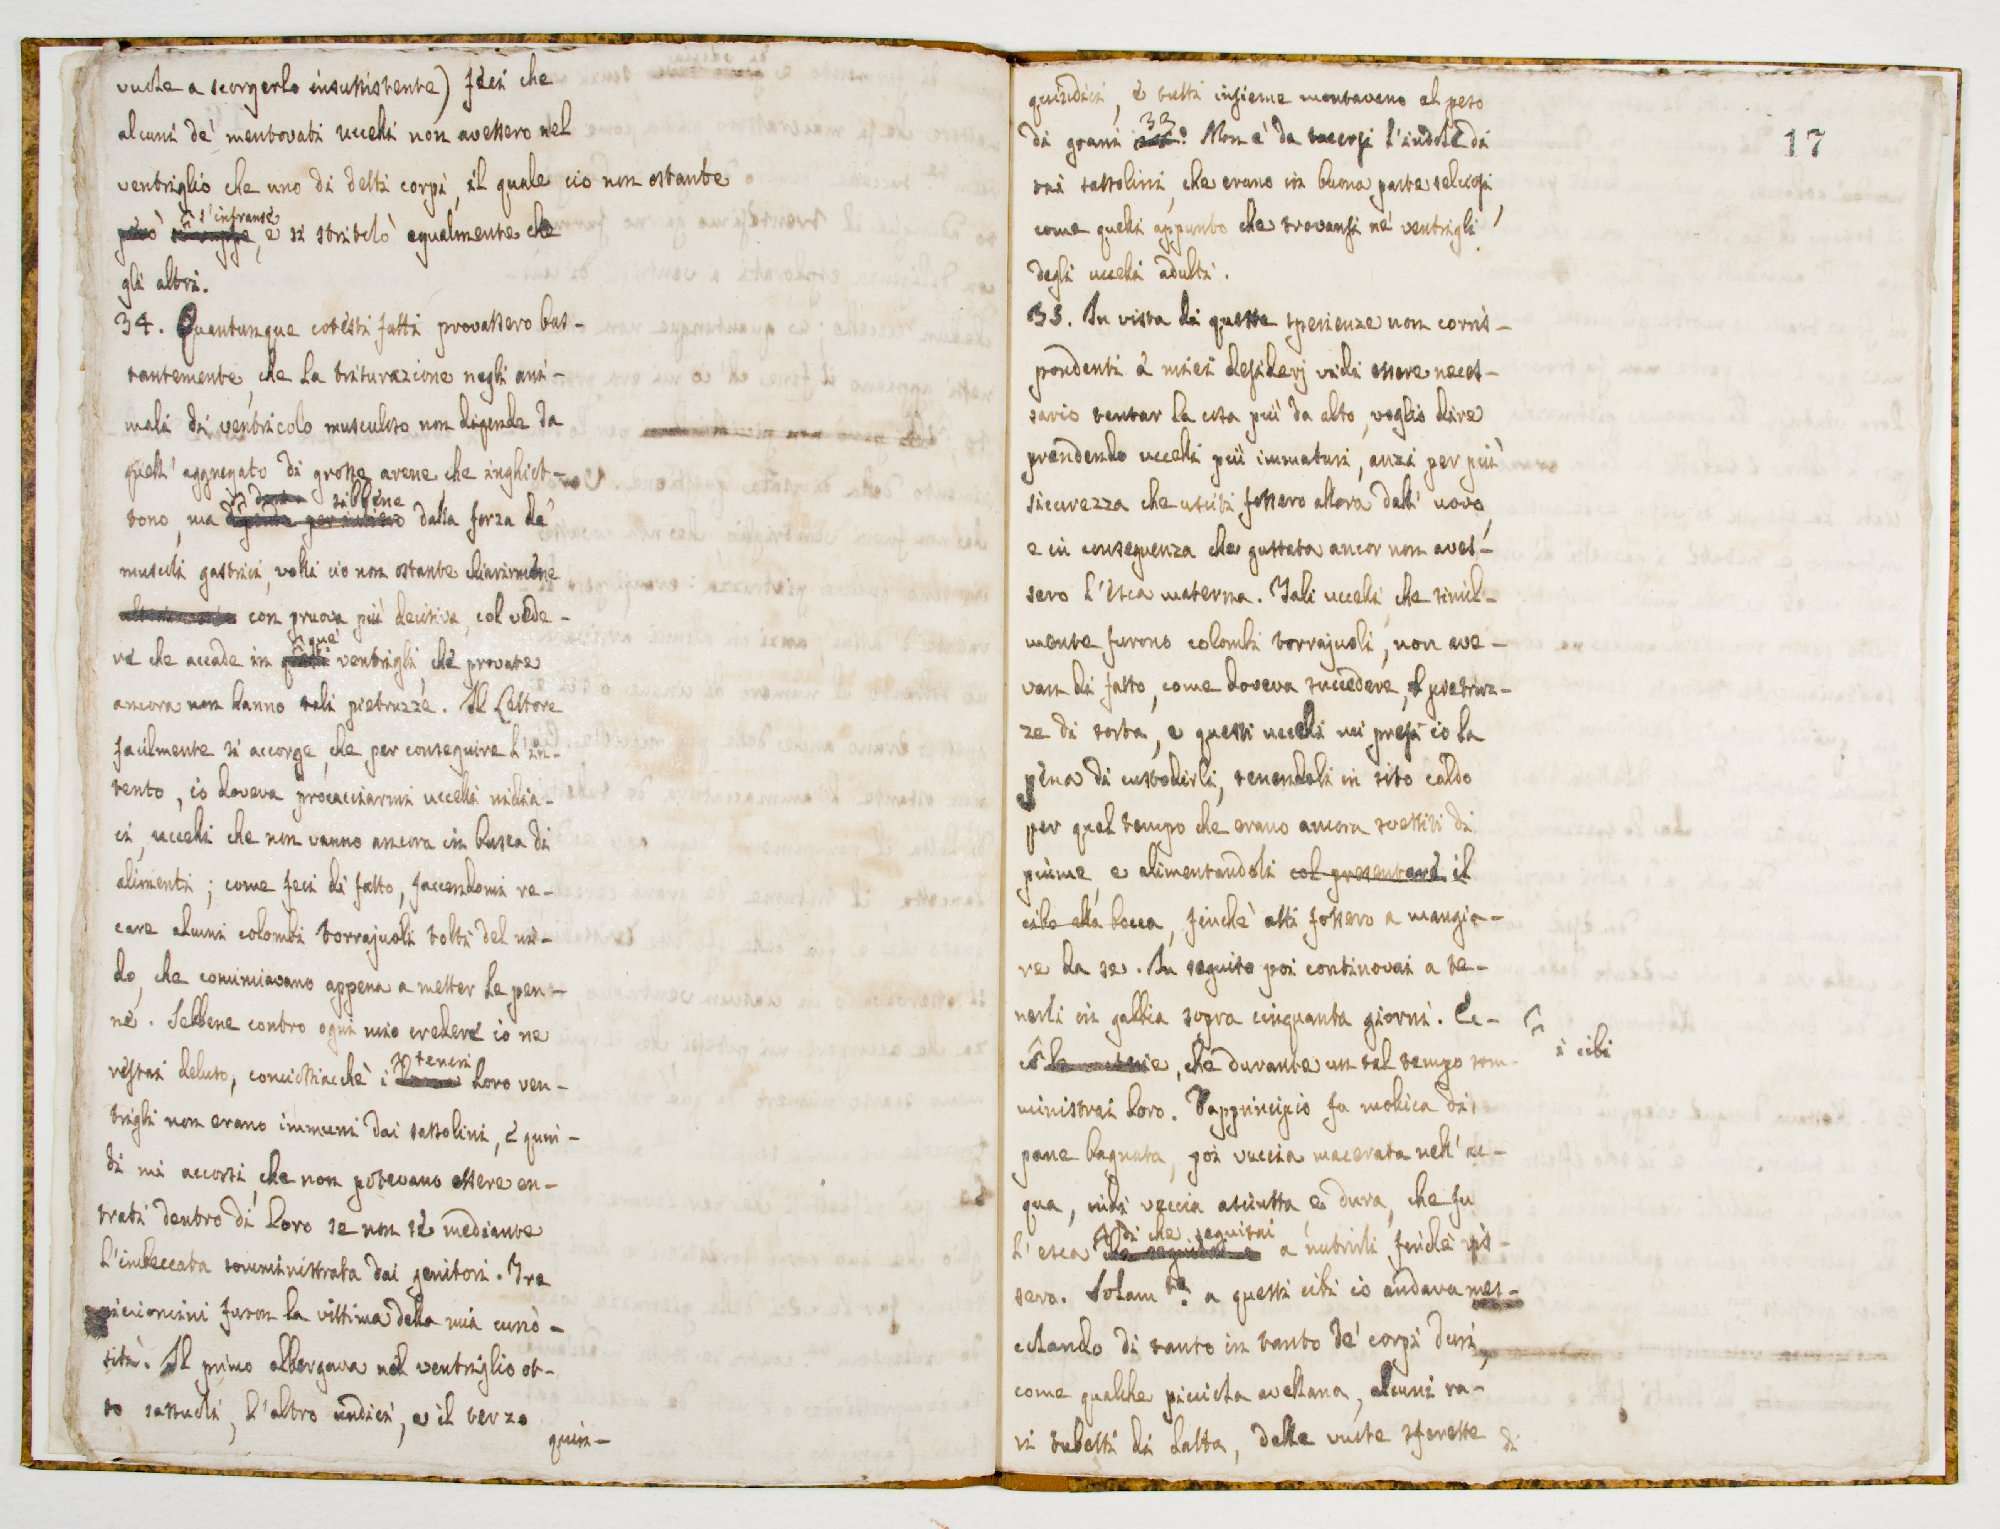 vuole a scorgerlo insussistente) feci che
alcuni de' mentovati uccelli non avessero nel
ventriglio che uno di detti corpi, il quale ciò non ostante
s'infranse
però si ruppe, e si stritolò egualmente che
gli altri.
34. Quantunque cotesti fatti provassero bas-
tantemente, che la triturazione negli ani-
mali di ventricolo musculoso non dipende da
quell' aggregato di grosse arene che inghiot-
sibbene
tono, ma dalla forza de'
muscoli gastrici, volli ciò non ostante chiarirmene
con pruova più decisiva, col vede-
que'
re che accade in questi ventrigli, che provate
ancora non hanno tali pietruzze. Il Lettore
facilmente si accorge, che per conseguire l'in-
tento, io doveva procacciarmi uccelli nidia-
ci, uccelli che non vanno ancora in busca di
alimenti; come feci di fatto, faccendomi re-
care alcuni colombi torrajuoli tolti del ni-
do, che cominciavano appena a metter le pen-
ne. Sebbene contro ogni mio credere io ne
teneri
restai deluso, conciossiachè i loro ven-
trigli non erano immuni dai sassolini, e quin-
di mi accorsi che non potevano essere en-
trati dentro di loro se non se mediante
l'imbeccata somministrata dai genitori. Tre
piccioncini furon la vittima della mia curio-
sità. Il primo albergava nel ventriglio ot-
to sassuoli, l'altro undici, e il terzo
quin-
17
quindici, e tutti insieme montavano al peso
33
di grani. Non è da tacersi l'indole di
tai sassolini, che erano in buona parte selciosi,
come quelli appunto che trovansi ne' ventrigli
degli uccelli adulti.
35. In vista di queste sperienze non corris-
pondenti a' miei desiderj vidi essere neces-
sario tentar la cosa più da alto, voglio dire
prendendo uccelli più immaturi, anzi per più
sicurezza che usciti fossero allora dall' uovo,
e in conseguenza che gustata ancor non aves-
sero l'esca materna. Tali uccelli che simil-
mente furono colombi torrajuoli, non ave-
van di fatto, come doveva succedere, pietruz-
ze di sorta, e questi uccelli mi presi io la
pena di custodirli, tenendoli in sito caldo
per quel tempo che erano ancora svestiti di
piume, e alimentandoli col presentare il
cibo alla bocca, finchè atti fossero a mangia-
re da se. In seguito poi continovai a te-
nerli in gabbia sopra cinquanta giorni. Ec-
i cibi
co le materie, che durante un tal tempo som-
ministrai loro. Dapprincipio fu mollica di
pane bagnata, poi veccia macerata nell' ac-
qua, indi veccia asciutta e dura, che fu
di che seguitai
l'esca che seguitai a nutrirli finchè vis-
sero. Solam.te a questi cibi io andava mes-
colando di tanto in tanto de' corpi duri,
come qualche picciola avellana, alcuni va-
ri tubetti di latta, delle vuote sferette
di